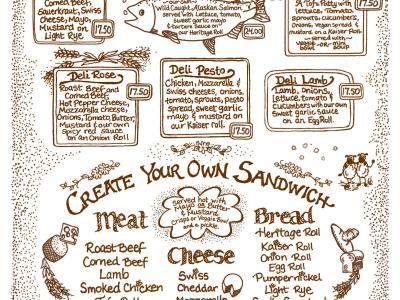 Corned Beef,
Sauerkraut, Swiss
Cheese, Mayo,
Mustard on
Light Rye
17.50
Wild Caught Alaskan Salmon,
served with Lettuce, tomato,
sweet garlic mayo
& tartare sauce on
our Heritage Roll
24.00
lettuce, Tomato,
sprouts, cucumbers,
Onions, Vegan mayo &
mustard on a Kaiser Roll
served with
veggie or mini
bowl soup
17.50
Deli Rose
Roast Beef and
Corned Beef,
Hot Pepper Cheese,
Mozzarella cheese,
Onions, Tomato, Butter,
Mustard & our own
Spicy red sauce
on an Onion Roll
17.50
Deli Pesto
Chicken, Mozzarella &
Swiss cheeses, onions,
tomato, sprouts, pesto
spread, sweet garlic
mayo & mustard on
our Kaiser roll.
17.50
Deli Lamb
Lamb, onions,
Lettuce, tomato &
cucumbers with our own
Sweet garlic sauce
on an Egg Roll.
17.50
Create Your Own Sandwich
served hot with
Mayo or Butter
& Mustard
Crisps or Veggie Bowl
and a pickle.
Meat
Roast Beef
Corned Beef
Lamb
Smoked Chicken
Cheese
Swiss
Cheddar
Mozzarella
Bread
Heritage Roll
Kaiser Roll
Onion Roll
Egg Roll
Pumpernickel
Light Rye